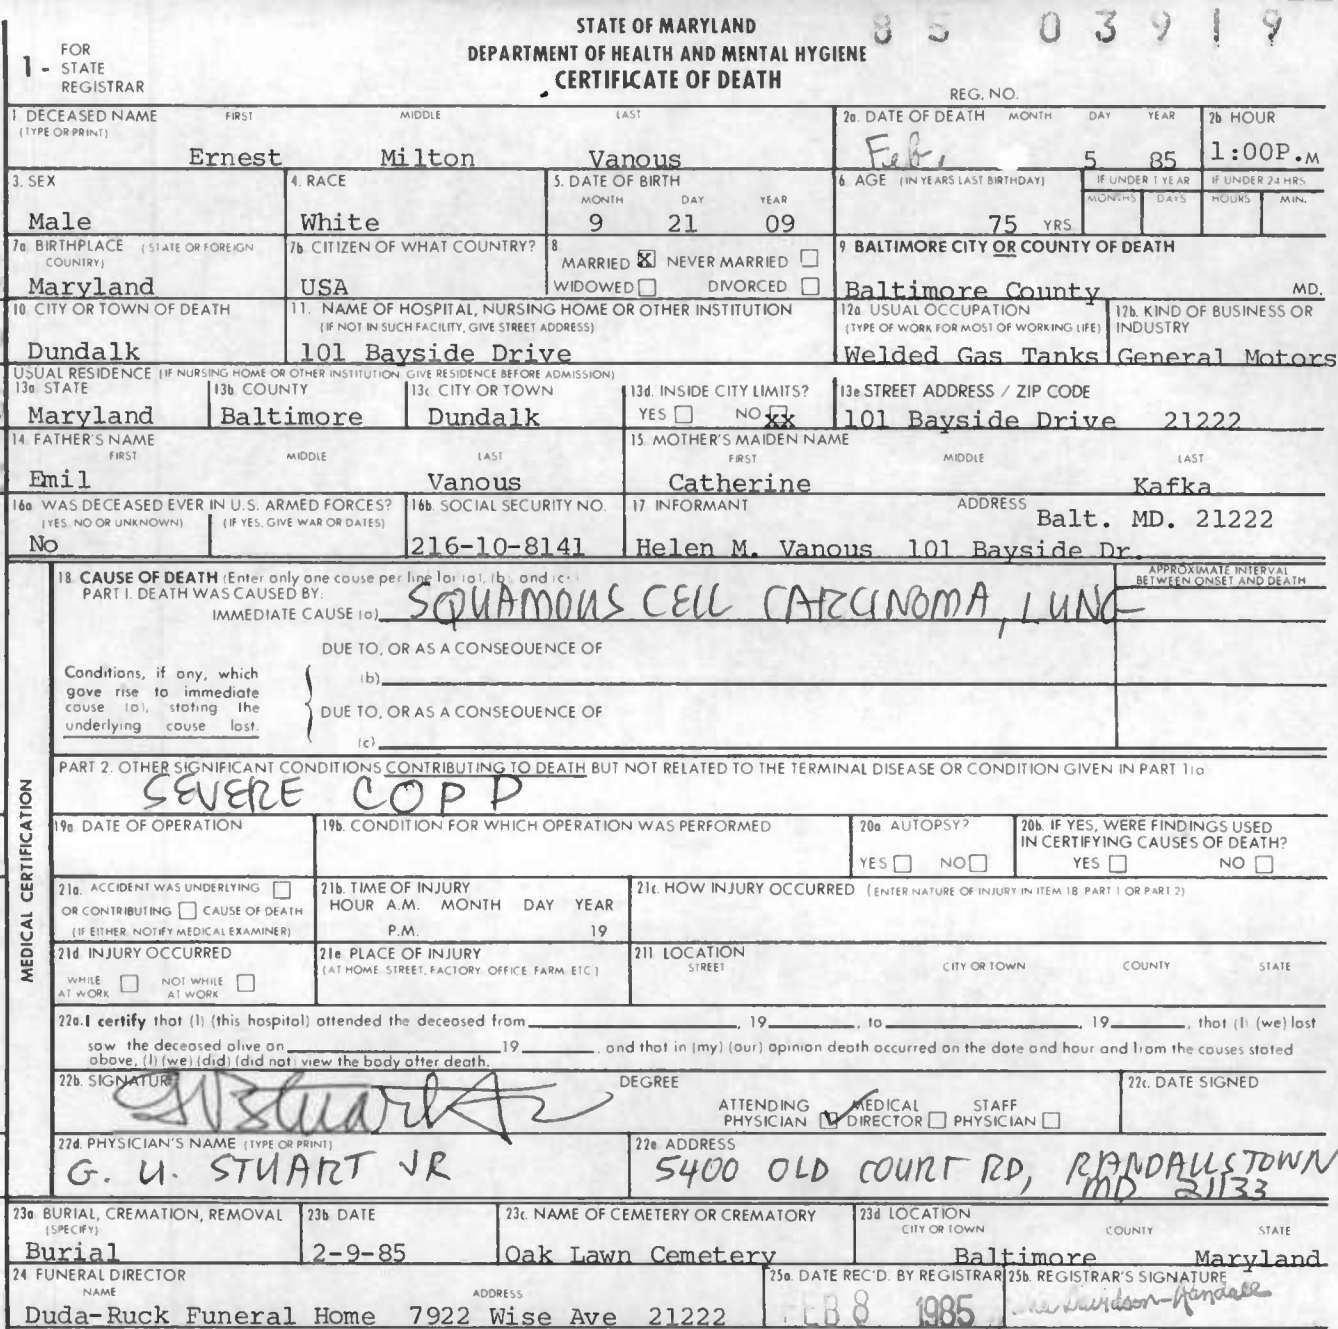 STATE OF MARYLAND
85 03919
DEPARTMENT OF HEALTH AND MENTAL HYGIENE
CERTIFICATE OF DEATH
1 - FOR STATE REGISTRAR
REG. NO.
1 DECEASED NAME (TYPE OR PRINT) FIRST MIDDLE LAST
Ernest Milton Vanous
2a. DATE OF DEATH MONTH DAY YEAR
Feb. 5 85
2b HOUR
1:00P.M
3. SEX
Male
4. RACE
White
5. DATE OF BIRTH MONTH DAY YEAR
9 21 09
6. AGE (IN YEARS LAST BIRTHDAY)
75 YRS
IF UNDER 1 YEAR MONTHS DAYS
IF UNDER 24 HRS HOURS MIN.
7a. BIRTHPLACE (STATE OR FOREIGN COUNTRY)
Maryland
7b. CITIZEN OF WHAT COUNTRY?
USA
8. MARRIED X NEVER MARRIED
WIDOWED DIVORCED
9. BALTIMORE CITY OR COUNTY OF DEATH
Baltimore County MD.
10. CITY OR TOWN OF DEATH
Dundalk
11. NAME OF HOSPITAL, NURSING HOME OR OTHER INSTITUTION
(IF NOT IN SUCH FACILITY, GIVE STREET ADDRESS)
101 Bayside Drive
12a USUAL OCCUPATION
(TYPE OF WORK FOR MOST OF WORKING LIFE)
Welded Gas Tanks
12b. KIND OF BUSINESS OR INDUSTRY
General Motors
USUAL RESIDENCE (IF NURSING HOME OR OTHER INSTITUTION GIVE RESIDENCE BEFORE ADMISSION)
13a STATE
Maryland
13b COUNTY
Baltimore
13c CITY OR TOWN
Dundalk
13d. INSIDE CITY LIMITS?
YES NO xx
13e STREET ADDRESS / ZIP CODE
101 Bayside Drive 21222
14. FATHER'S NAME FIRST MIDDLE LAST
Emil Vanous
15. MOTHER'S MAIDEN NAME FIRST MIDDLE LAST
Catherine Kafka
16a WAS DECEASED EVER IN U.S. ARMED FORCES?
(YES. NO OR UNKNOWN) (IF YES, GIVE WAR OR DATES)
No
16b. SOCIAL SECURITY NO.
216-10-8141
17 INFORMANT ADDRESS
Balt. MD. 21222
Helen M. Vanous 101 Bayside Dr.
MEDICAL CERTIFICATION
18. CAUSE OF DEATH (Enter only one cause per line for (a), (b), and (c).)
APPROXIMATE INTERVAL BETWEEN ONSET AND DEATH
PART I. DEATH WAS CAUSED BY:
IMMEDIATE CAUSE (a) SQUAMOUS CELL CARCINOMA, LUNG
DUE TO, OR AS A CONSEQUENCE OF
(b)
DUE TO, OR AS A CONSEQUENCE OF
(c)
Conditions, if any, which
gave rise to immediate
cause (a), stating the
underlying cause last.
PART 2. OTHER SIGNIFICANT CONDITIONS CONTRIBUTING TO DEATH BUT NOT RELATED TO THE TERMINAL DISEASE OR CONDITION GIVEN IN PART 1(a)
SEVERE COPD
19a DATE OF OPERATION
19b. CONDITION FOR WHICH OPERATION WAS PERFORMED
20a AUTOPSY?
YES NO
20b. IF YES, WERE FINDINGS USED
IN CERTIFYING CAUSES OF DEATH?
YES NO
21a. ACCIDENT WAS UNDERLYING
OR CONTRIBUTING CAUSE OF DEATH
(IF EITHER. NOTIFY MEDICAL EXAMINER)
21b. TIME OF INJURY
HOUR A.M. MONTH DAY YEAR
P.M. 19
21c. HOW INJURY OCCURRED (ENTER NATURE OF INJURY IN ITEM 18 PART 1 OR PART 2)
21d INJURY OCCURRED
WHILE AT WORK NOT WHILE AT WORK
21e PLACE OF INJURY
(AT HOME. STREET, FACTORY OFFICE FARM. ETC)
21f LOCATION STREET CITY OR TOWN COUNTY STATE
22a. I certify that (I) (this hospital) attended the deceased from 19 , to 19 , that (I) (we) last
saw the deceased alive on 19 , and that in (my) (our) opinion death occurred on the date and hour and from the causes stated
above, (I) (we) (did) (did not) view the body after death.
22b. SIGNATURE
G U Stuart Jr
DEGREE
ATTENDING PHYSICIAN MEDICAL DIRECTOR STAFF PHYSICIAN
22c. DATE SIGNED
22d. PHYSICIAN'S NAME (TYPE OR PRINT)
G. U. STUART JR
22e ADDRESS
5400 OLD COURT RD, RANDALLSTOWN
MD 21133
23a BURIAL, CREMATION, REMOVAL (SPECIFY)
Burial
23b DATE
2-9-85
23c. NAME OF CEMETERY OR CREMATORY
Oak Lawn Cemetery
23d LOCATION CITY OR TOWN COUNTY STATE
Baltimore Maryland
24 FUNERAL DIRECTOR NAME ADDRESS
Duda-Ruck Funeral Home 7922 Wise Ave 21222
25a. DATE REC'D. BY REGISTRAR
FEB 8 1985
25b. REGISTRAR'S SIGNATURE
Davidson-Randall